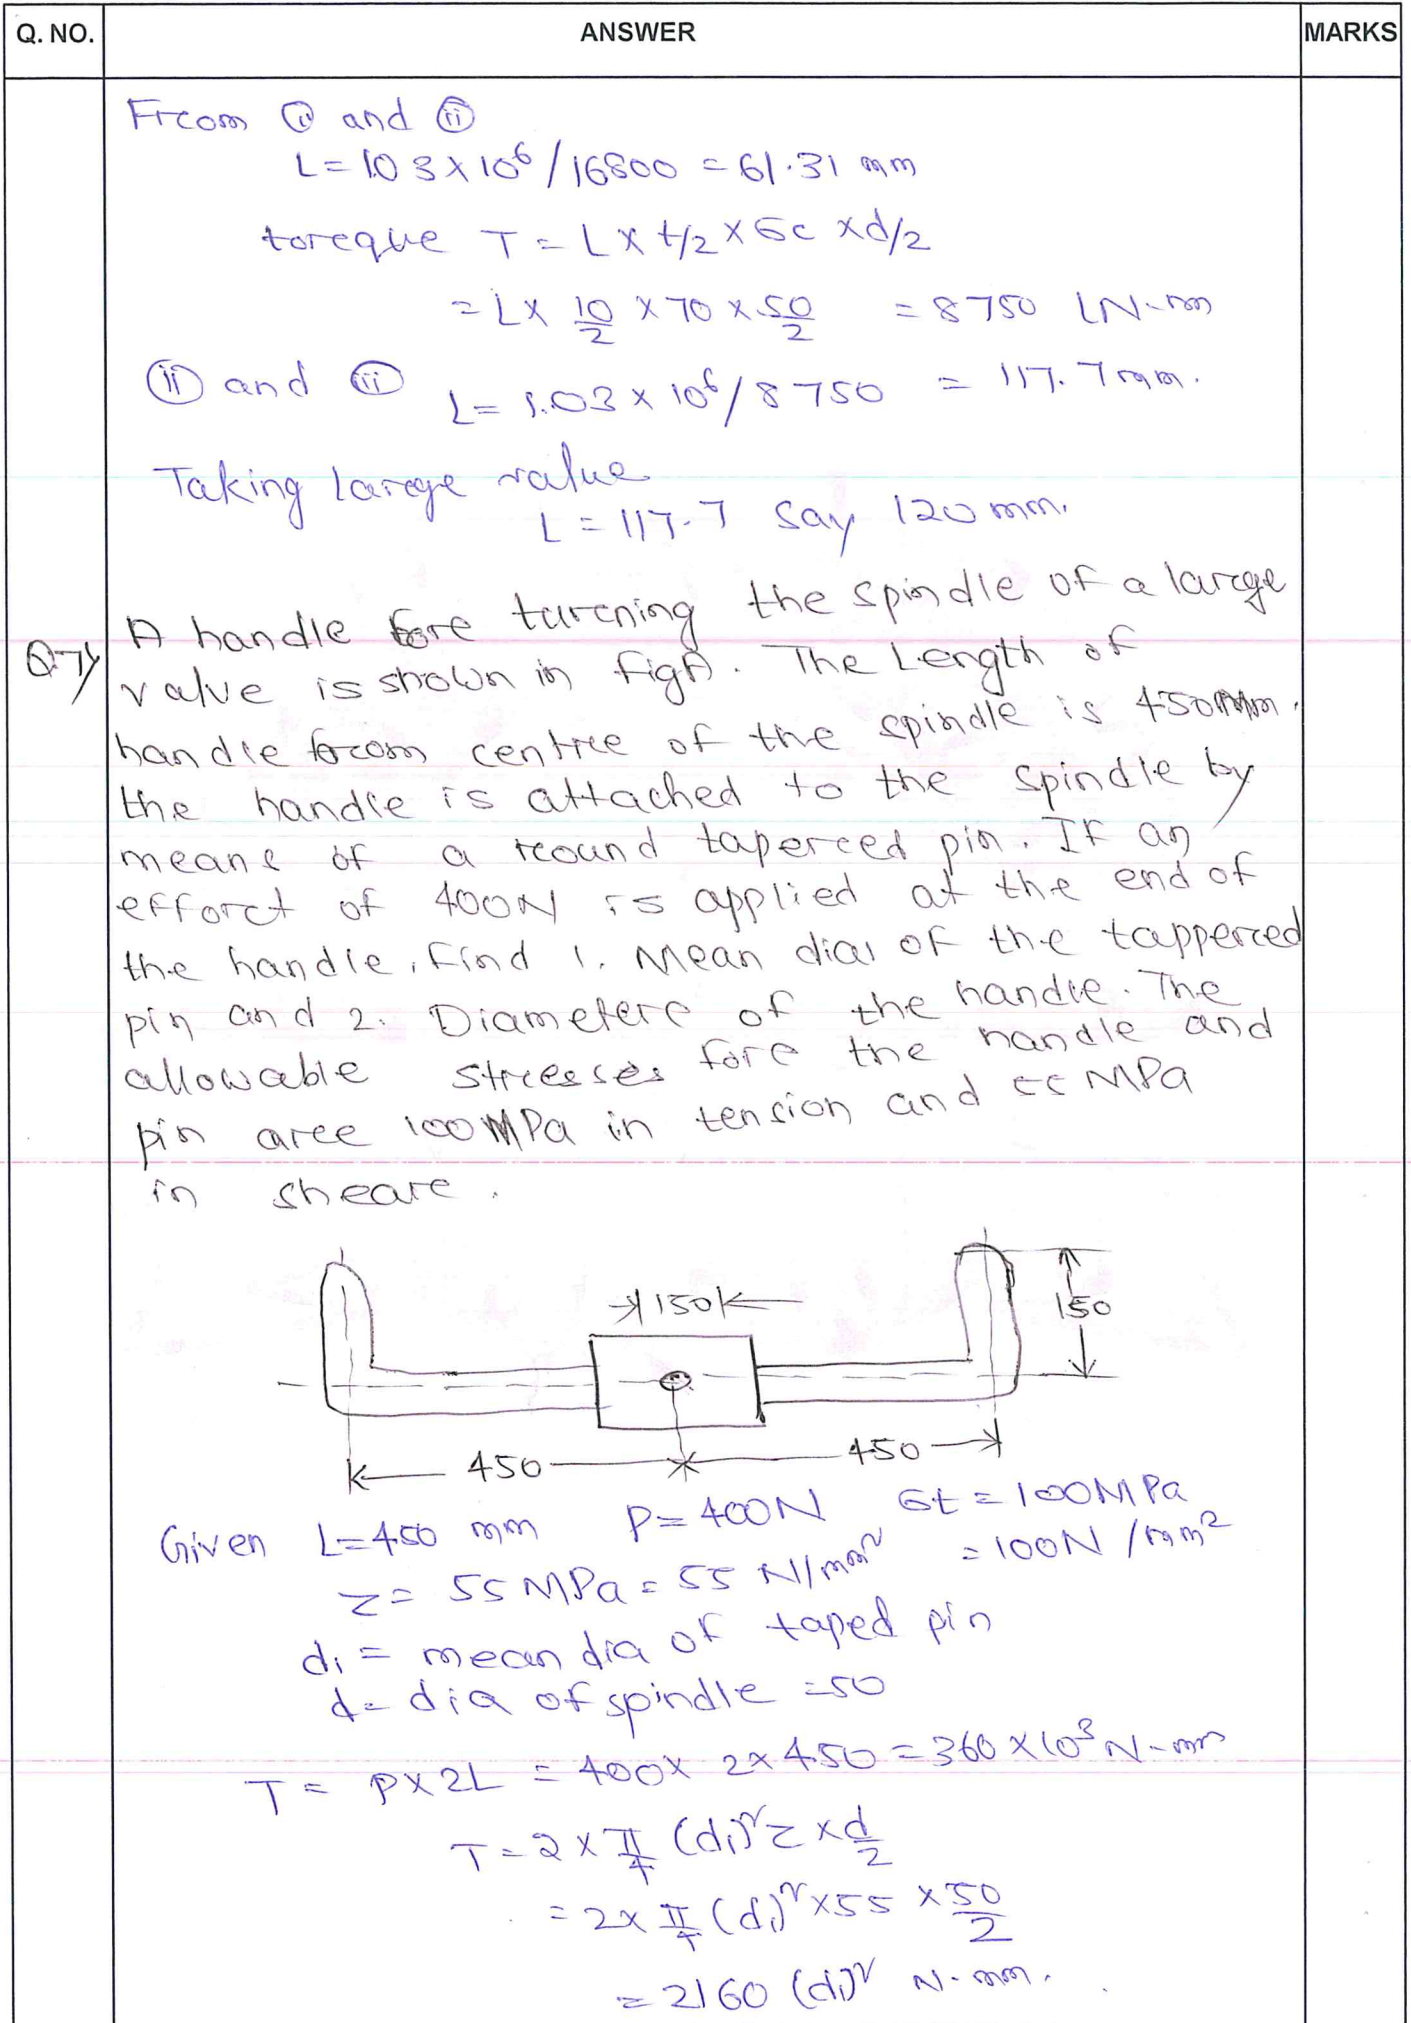 Q. NO. ANSWER MARKS
Frcom ⓘ and ⓘⓘ
L = 103 x 10⁶ / 16800 = 61.31 mm
toreque T = L x t/2 x σc x d/2
= L x 10/2 x 70 x 50/2 = 8750 LN-m
ⓘⓘ and ⓘⓘⓘ L = 1.03 x 10⁶ / 8750 = 117.7 mm.
Taking Larege value
L = 117.7 say 120 mm.
Q.7) A handle fore turcning the spindle of a larcge
valve is shown in fig. The Length of
handle frcom centree of the spindle is 450mm.
the handle is attached to the spindle by
means of a rcound taperced pin. If an
efforct of 400N is applied at the end of
the handle, find 1. Mean dia of the tapperced
pin and 2. Diameterc of the handle. The
allowable strcesses forc the handle and
pin arce 100 MPa in tension and 55 MPa
in sheare.
150
150
450 450
Given L = 450 mm P = 400N σt = 100MPa
= 100N / mm²
τ = 55 MPa = 55 N/mm²
d₁ = mean dia of taped pin
d = dia of spindle = 50
T = P x 2L = 400 x 2 x 450 = 360 x 10³ N-mm
T = 2 x π/4 (d₁)² τ x d/2
= 2 x π/4 (d₁)² x 55 x 50/2
= 2160 (d₁)² N-mm.